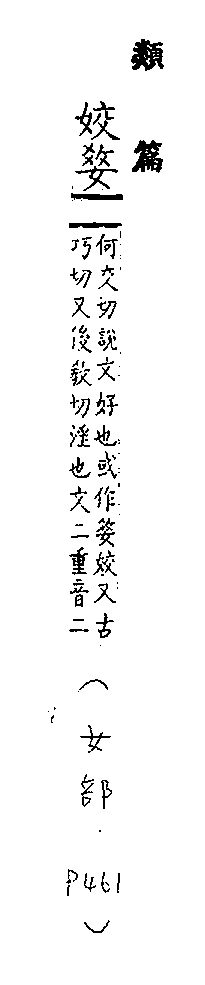 類篇
姣
何交切說文好也或作姣又古
巧切又後敎切淫也文二重音二
(女部.P461)